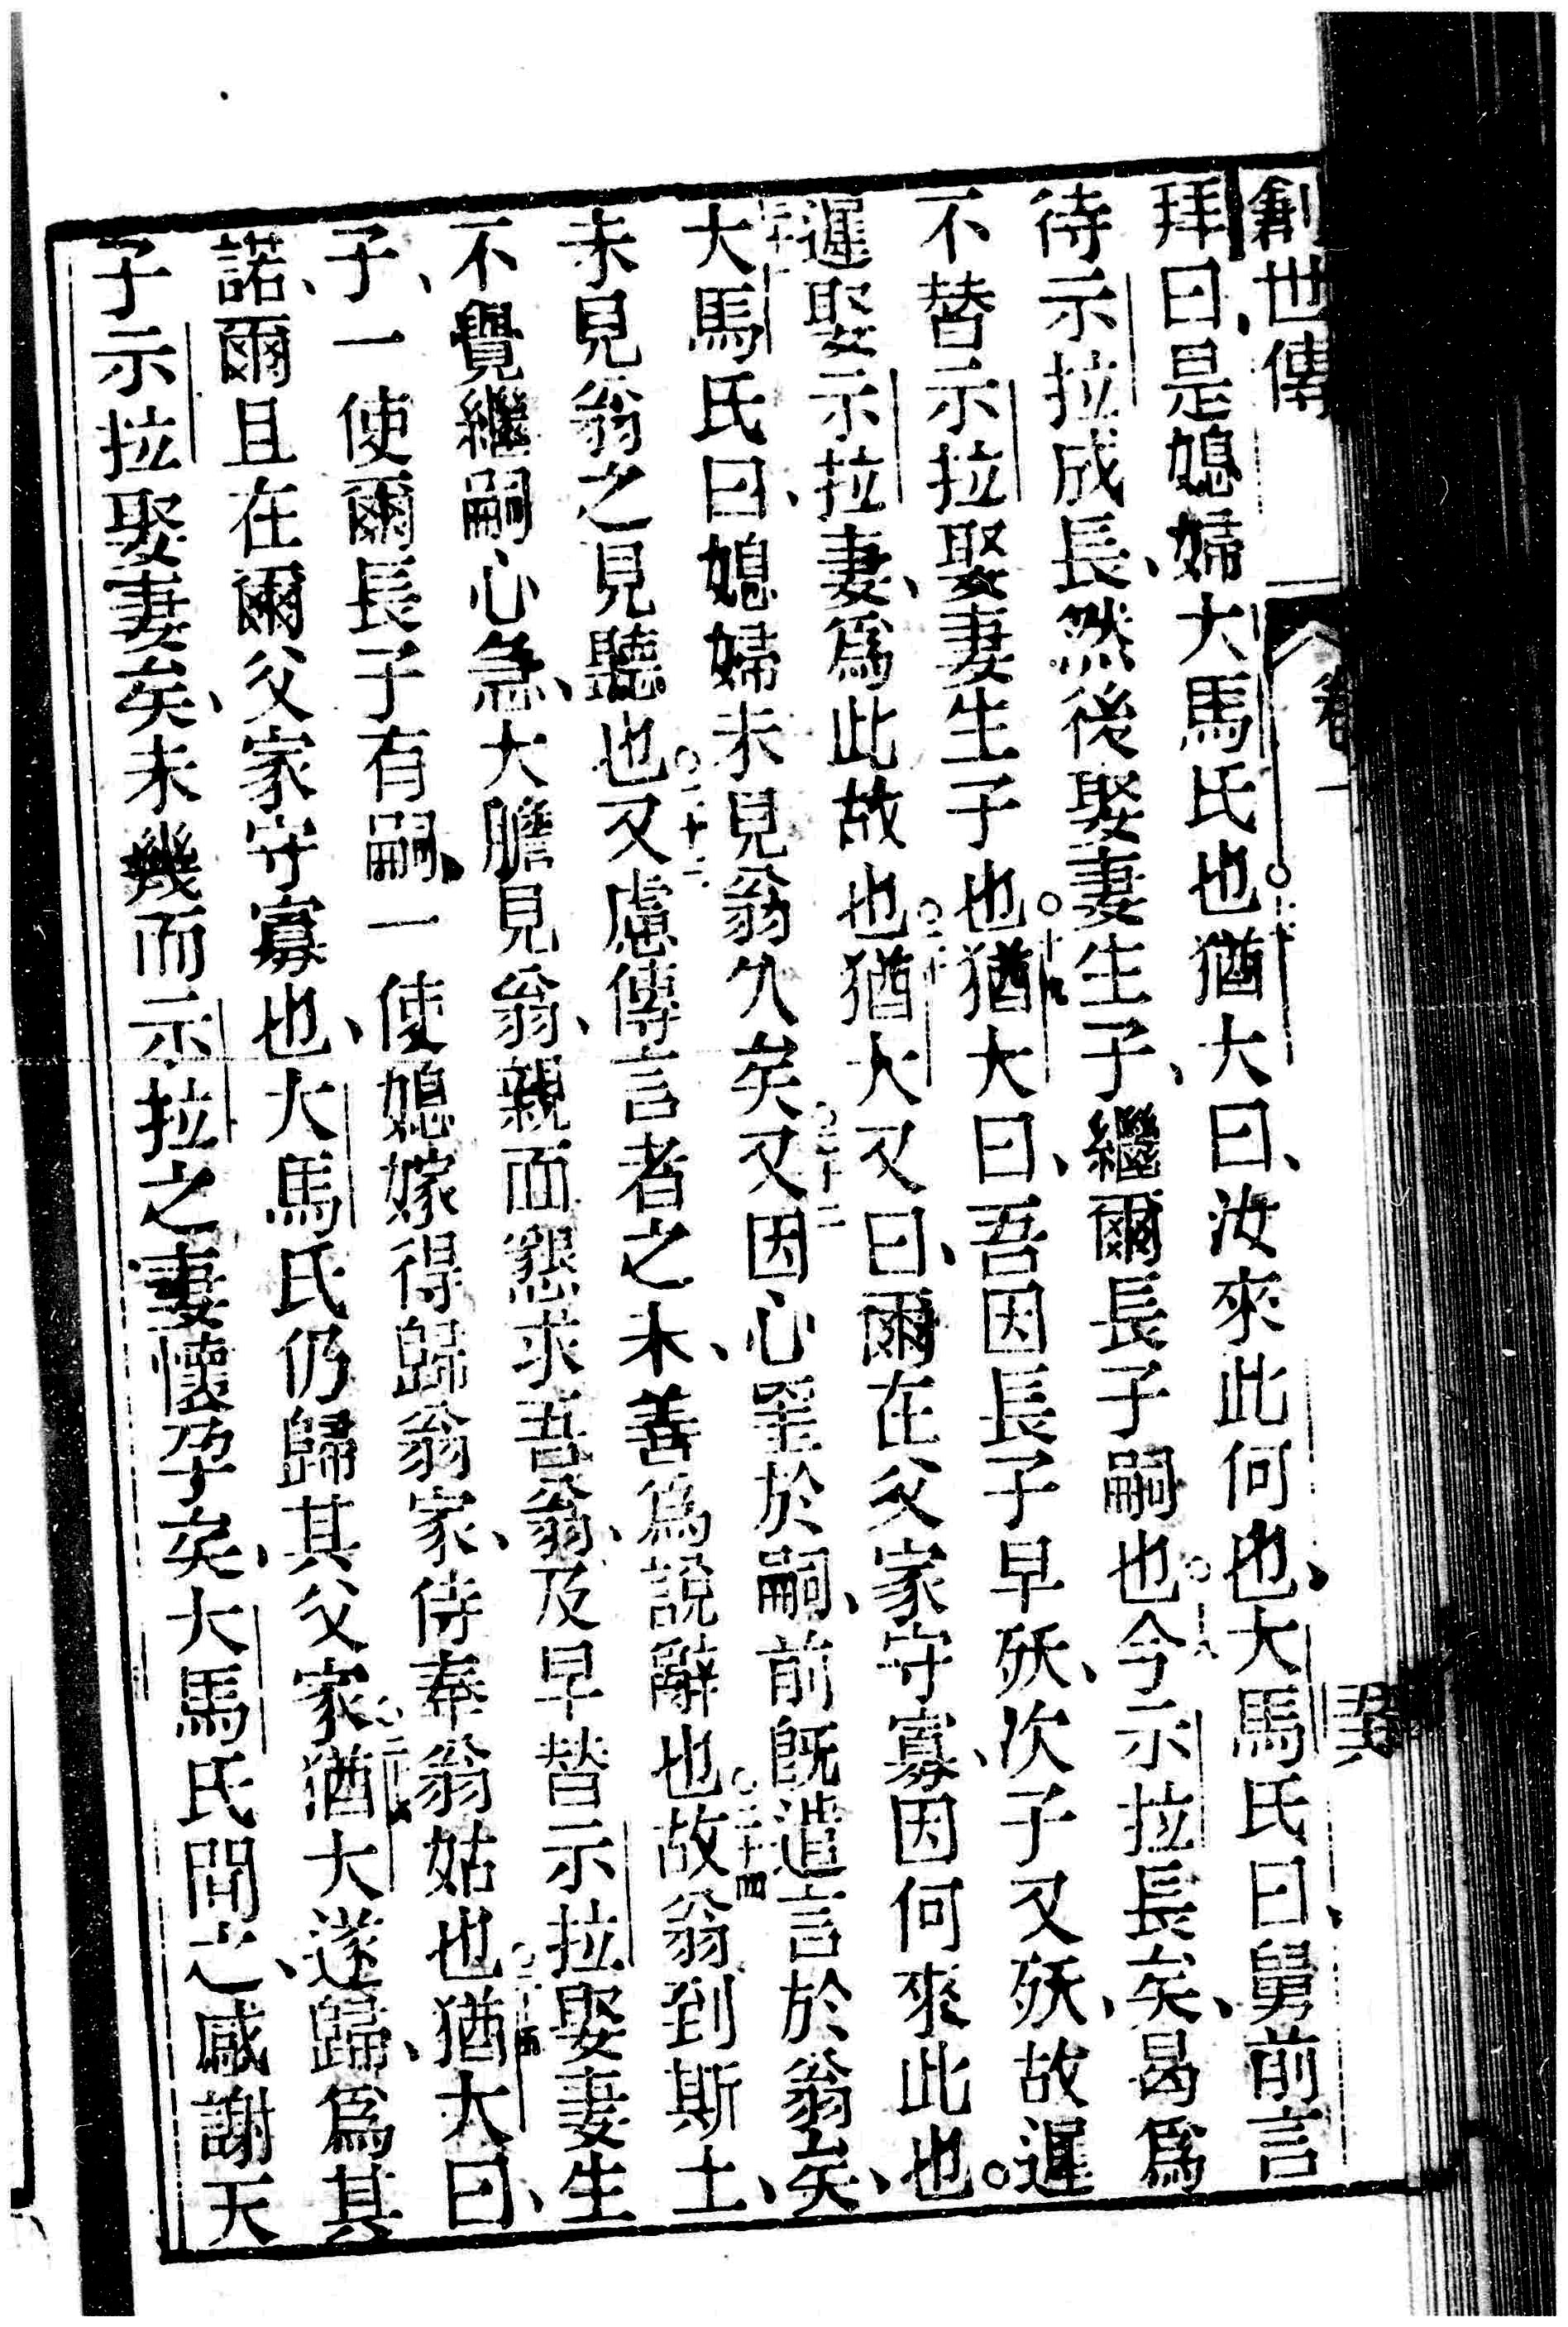 創世傳 卷一
拜曰、是媳婦大馬氏也。猶大曰、汝來此何也、大馬氏曰、舅前言
待示拉成長、然後娶妻生子、繼爾長子嗣也。十八今示拉長矣、曷爲
不替示拉娶妻生子也。十九猶大曰、吾因長子早殀、次子又殀、故遲
遲娶示拉妻、爲此故也。二十猶大又曰、爾在父家守寡、因何來此也。
二十一大馬氏曰、媳婦未見翁久矣。二十二又因心罣於嗣、前旣遣言於翁矣、
未見翁之見聽也。二十三又慮傳言者之未、善爲說辭也。二十四故翁到斯土、
不覺繼嗣心急、大膽見翁、親面懇求吾翁、及早替示拉娶妻生
子、一使爾長子有嗣、一使媳嫁得歸翁家、侍奉翁姑也。二十五猶大曰、
諾、爾且在爾父家守寡也、大馬氏仍歸其父家。二十六猶大遂歸、爲其
子示拉娶妻矣、未幾而示拉之妻懷孕矣、大馬氏聞之、感謝天